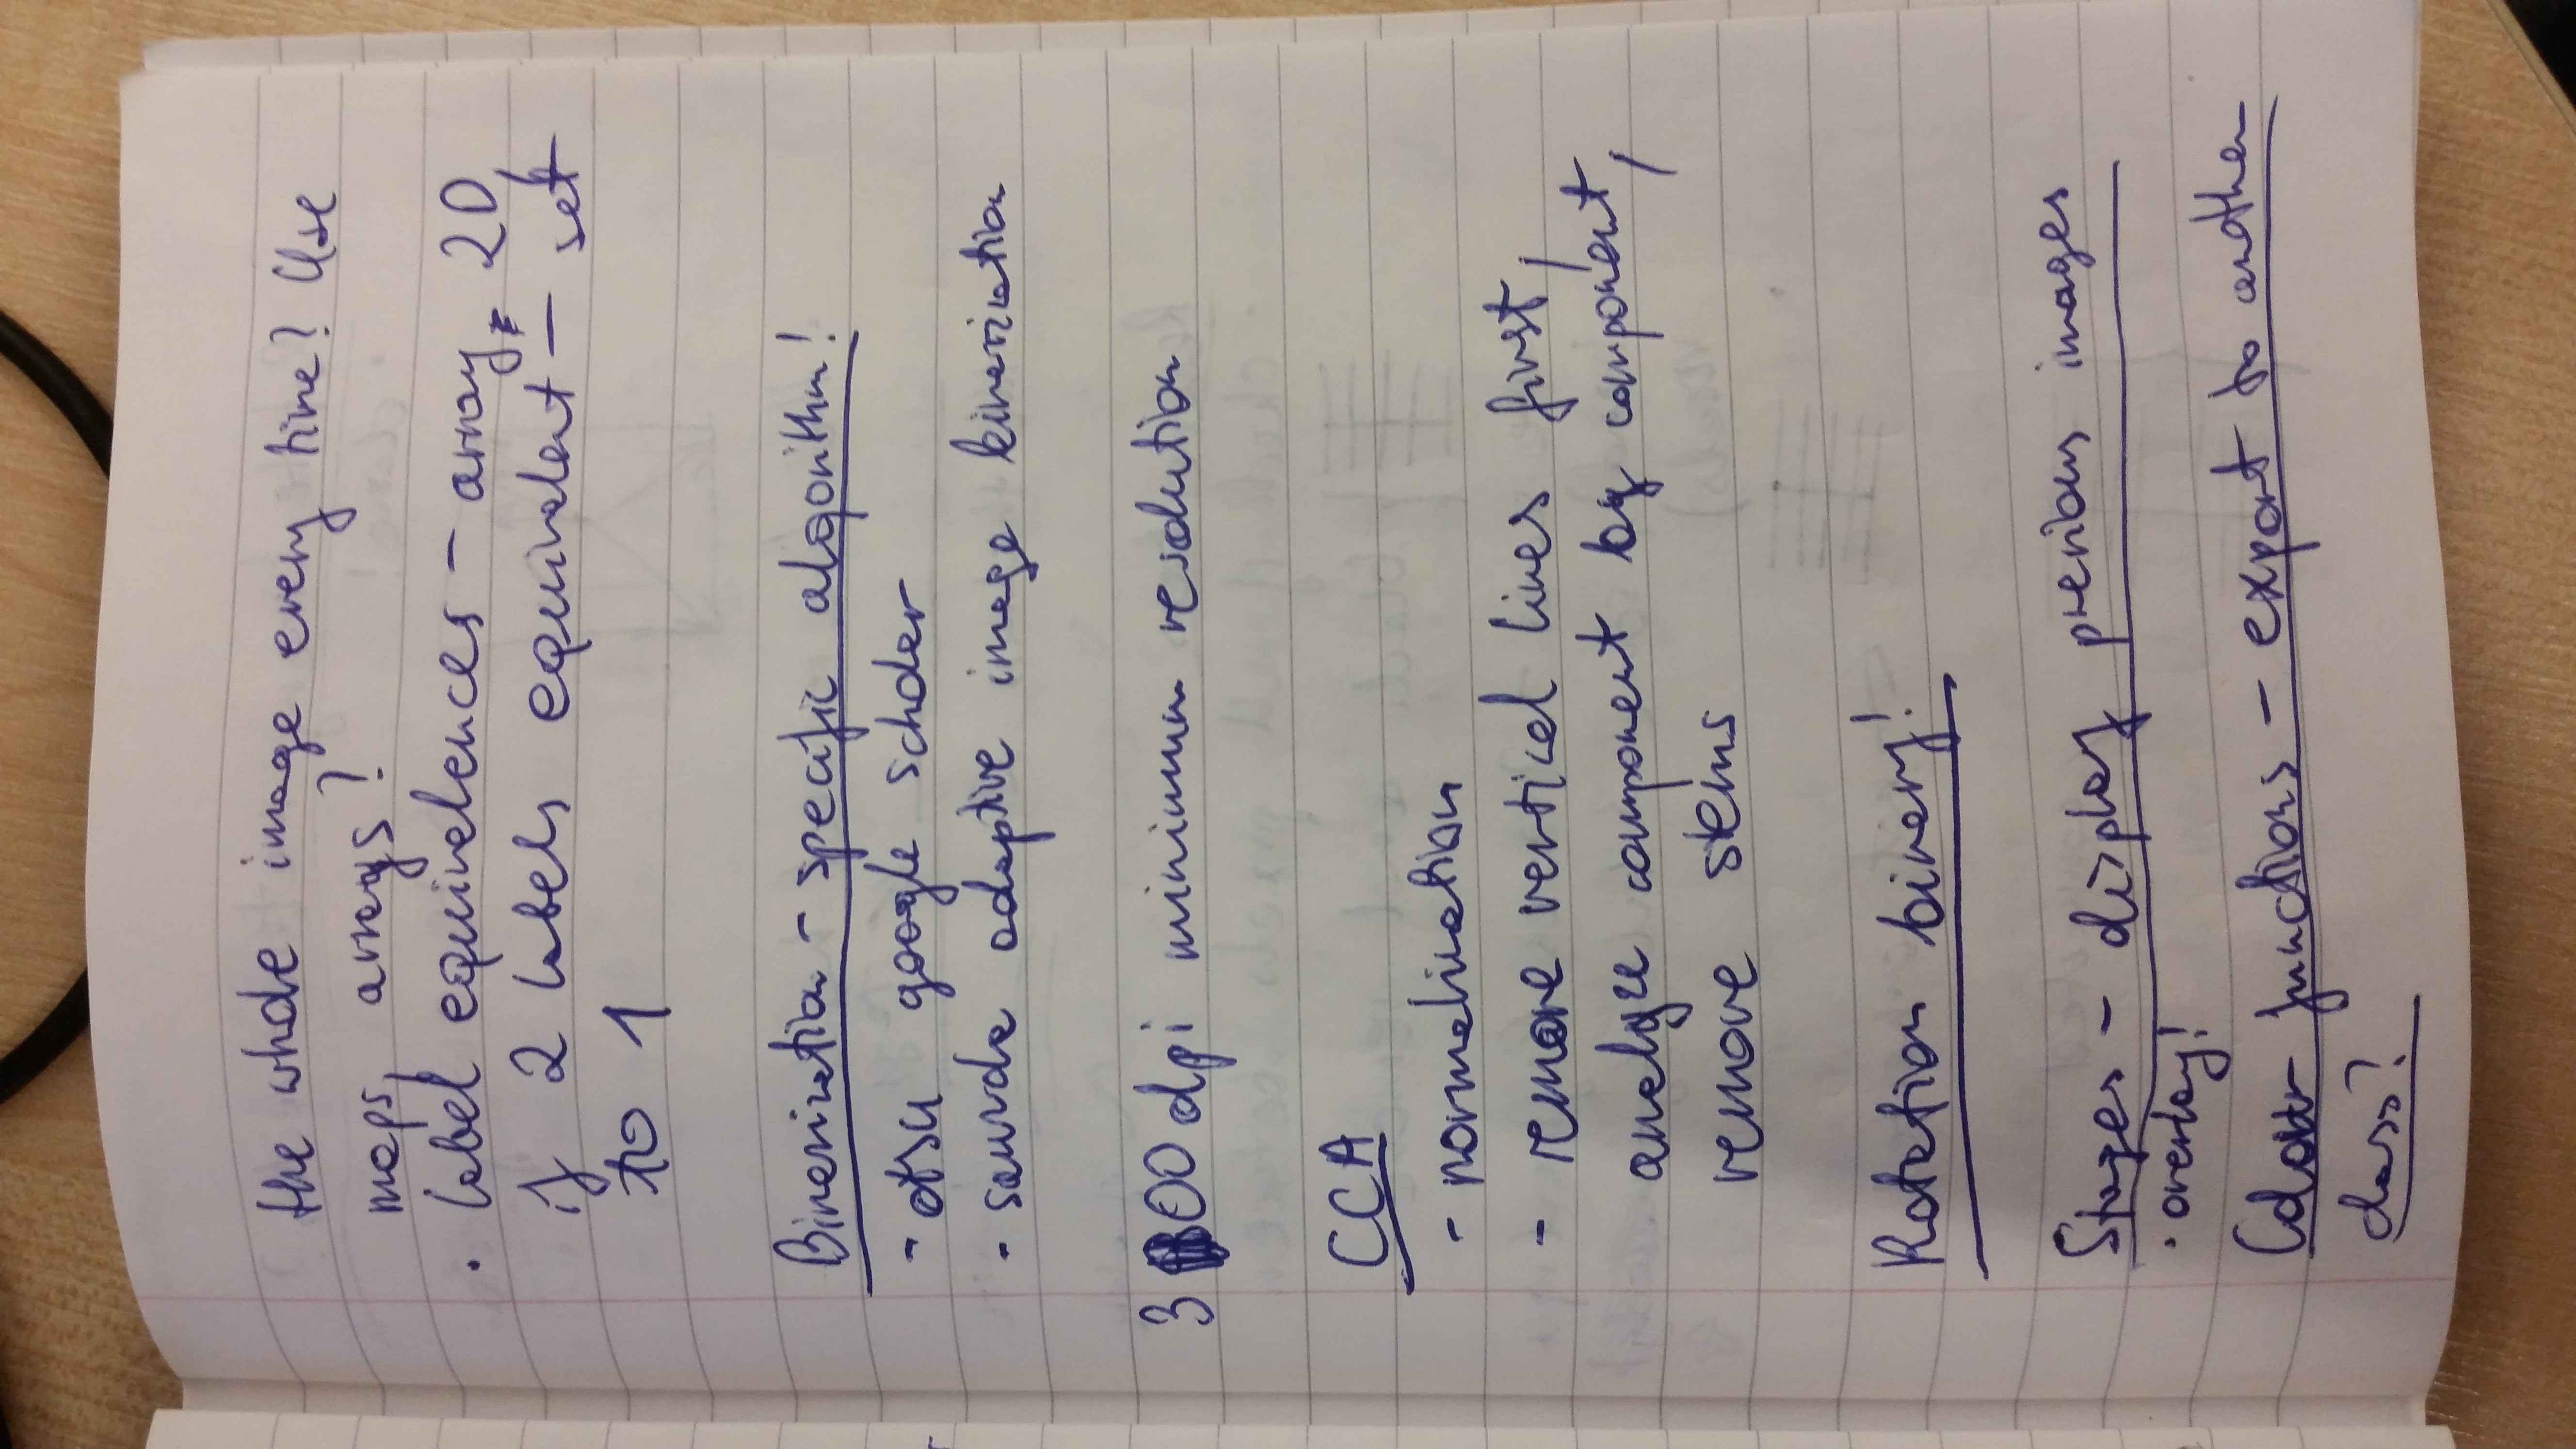 the whole image every time? Use
maps, arrays?
· label equivalences - array, 2D,
if 2 labels equivalent - set
to 1
Binarization - specific algorithm!
- otsu google scholar
- sauvola adaptive image binarization
300 dpi minimum resolution
CCA
- normalization
- remove vertical lines first,
analyze component by component,
remove stems
Rotation binary!
Stages - display previous images
· overlay!
Colour functions - export to another
class?